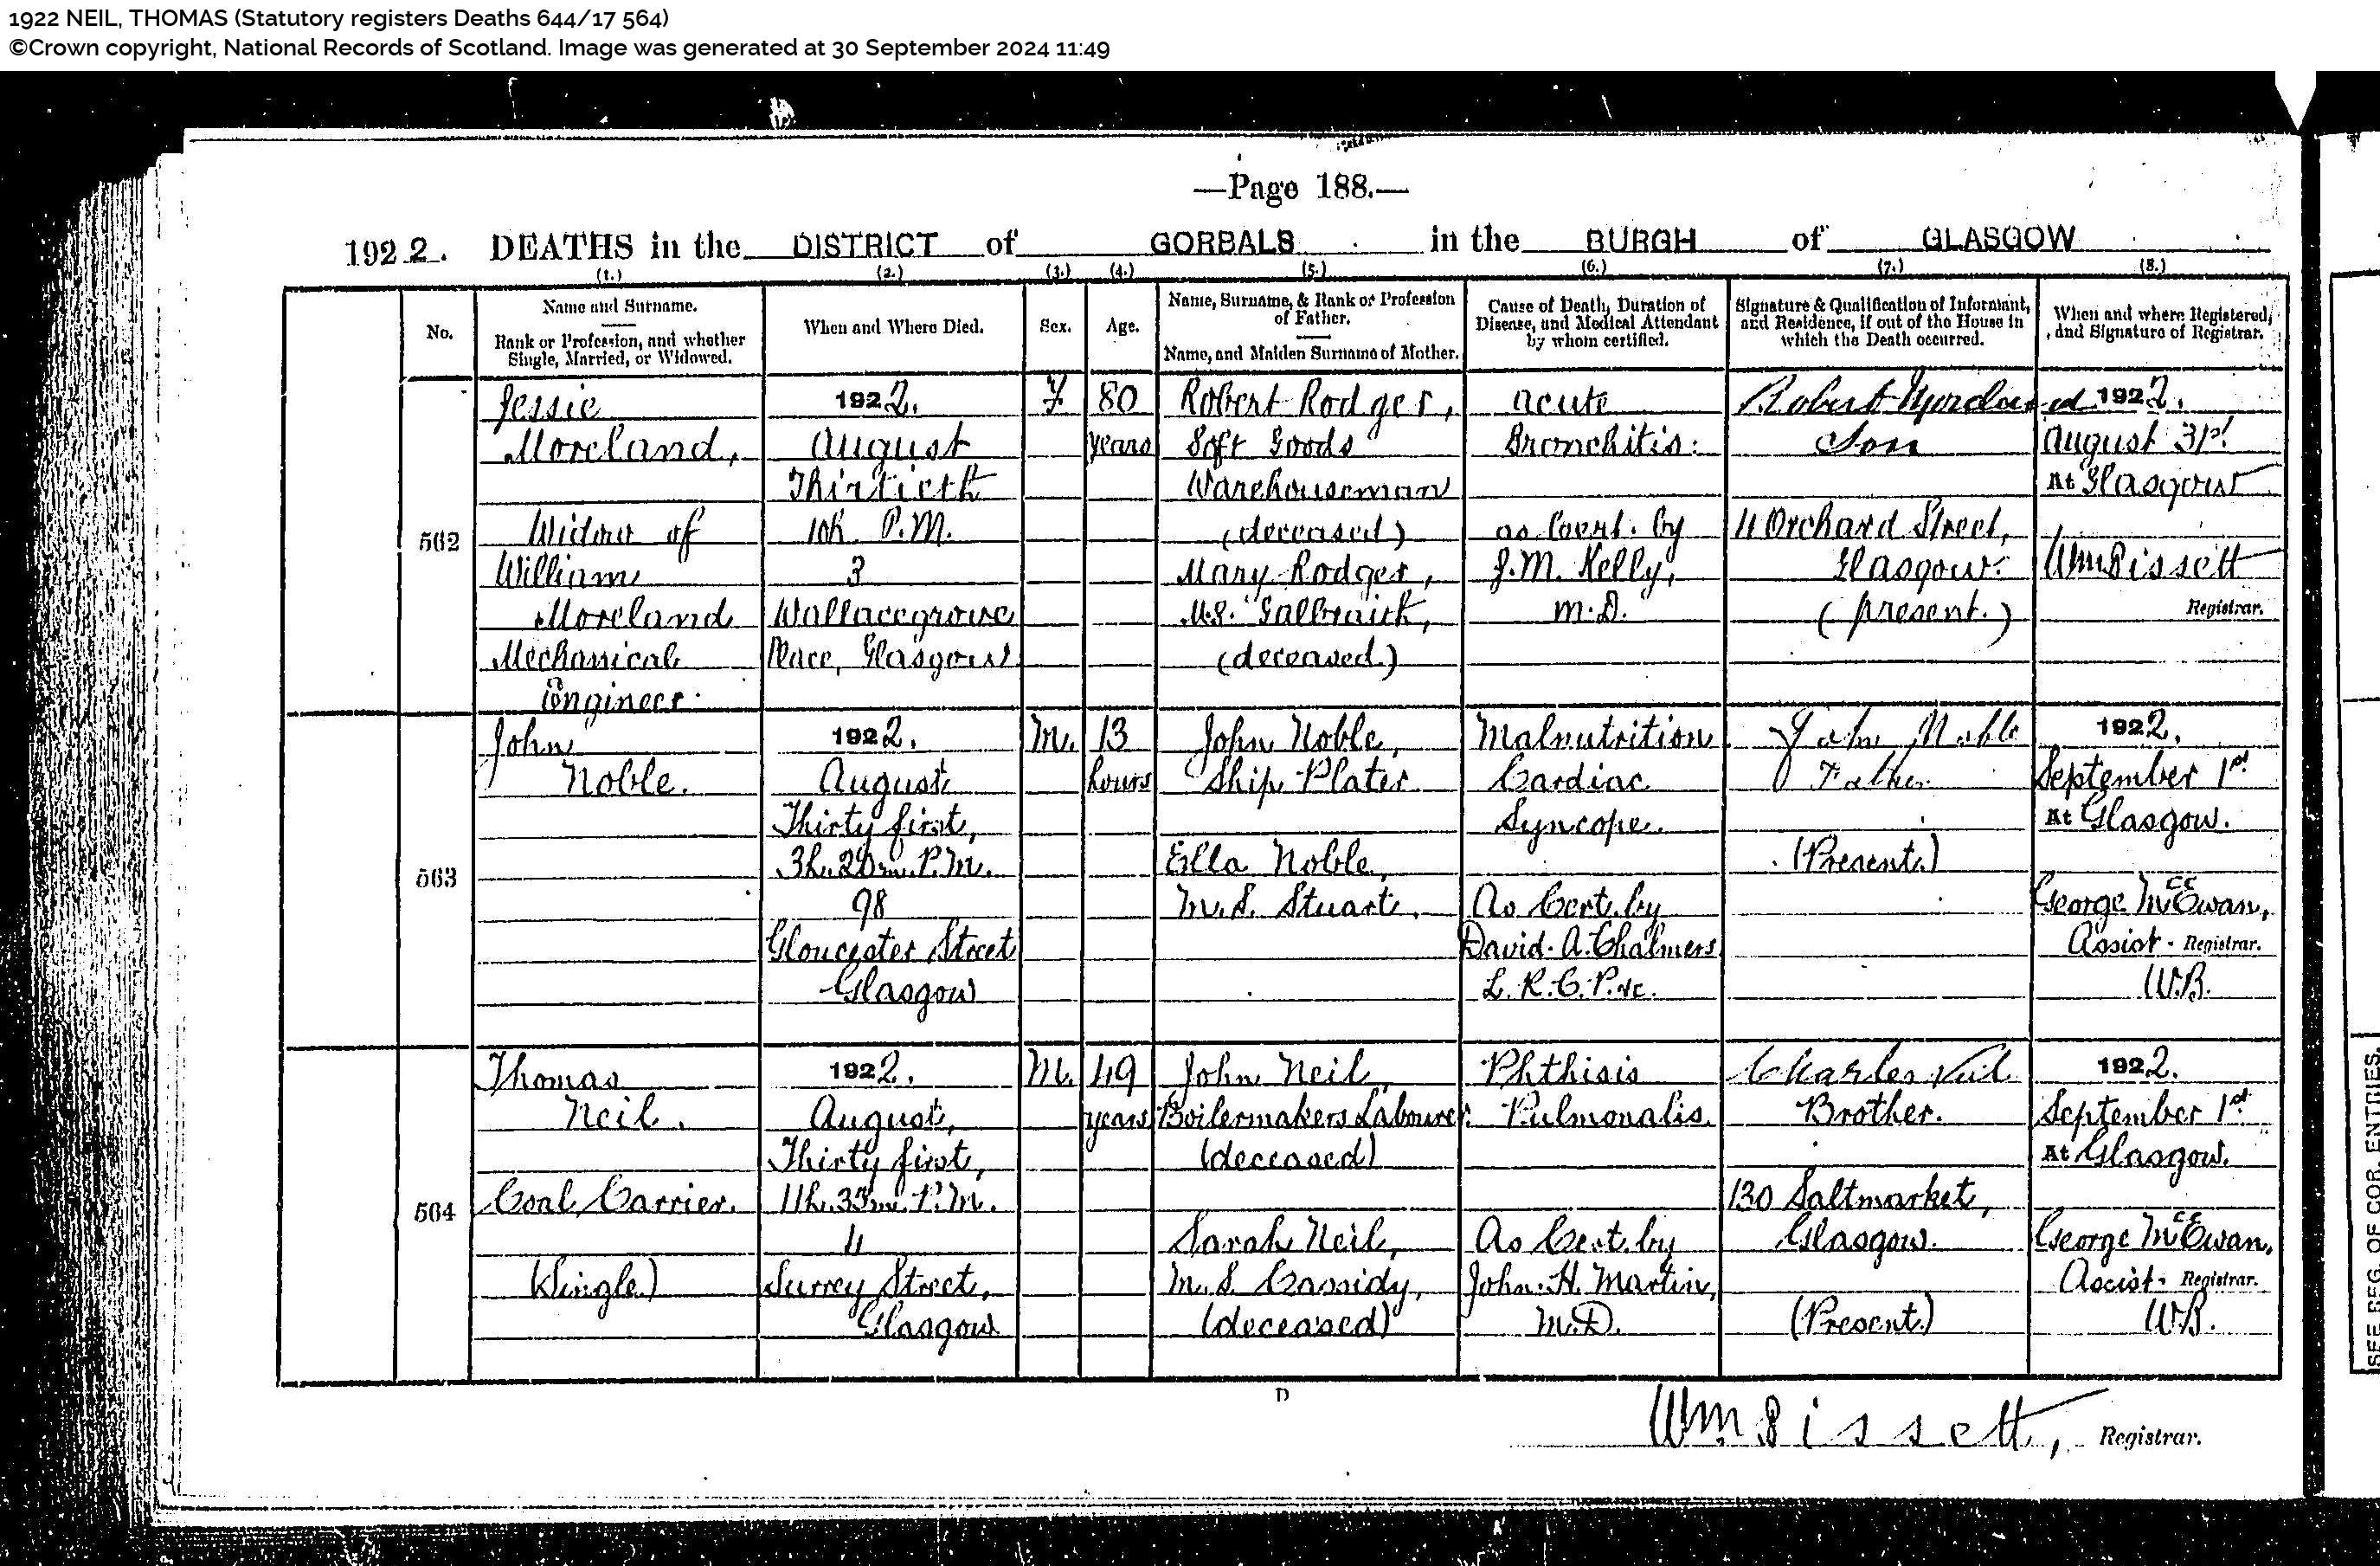 1922 NEIL, THOMAS (Statutory registers Deaths 644/17 564)
©Crown copyright, National Records of Scotland. Image was generated at 30 September 2024 11:49
—Page 188.—
1922. DEATHS in the DISTRICT of GORBALS in the BURGH of GLASGOW
(1.) (2.) (3.) (4.) (5.) (6.) (7.) (8.)
No.
Name and Surname.
Rank or Profession, and whether
Single, Married, or Widowed.
When and Where Died.
Sex.
Age.
Name, Surname, & Rank or Profession
of Father.
Name, and Maiden Surname of Mother.
Cause of Death, Duration of
Disease, and Medical Attendant
by whom certified.
Signature & Qualification of Informant,
and Residence, if out of the House in
which the Death occurred.
When and where Registered,
and Signature of Registrar.
562
Jessie
Moreland,
Widow of
William
Moreland
Mechanical
Engineer.
1922.
August
Thirtieth
10h. P.M.
3
Wallacegrove
Place, Glasgow
F
80
years
Robert Rodger,
Soft Goods
Warehouseman
(deceased)
Mary Rodger,
M.S. Galbraith,
(deceased.)
Acute
Bronchitis:
as Cert. by
J.M. Kelly,
M.D.
Robert
Son
11 Orchard Street,
Glasgow.
(present.)
1922.
August 31st
At Glasgow
Wm Bissett
Registrar.
563
John
Noble.
1922.
August
Thirty first,
3h. 20m. P.M.
98
Gloucester Street
Glasgow
M.
13
hours
John Noble,
Ship Plater
Ella Noble,
M.S. Stuart.
Malnutrition
Cardiac
Syncope.
As Cert. by
David. A. Chalmers
L.R.C.P. &c.
John Noble
Father
(Present.)
1922.
September 1st
At Glasgow.
George McEwan,
Assist. Registrar.
W.B.
564
Thomas
Neil.
Coal Carrier.
(Single)
1922.
August,
Thirty first,
11h. 33m. P.M.
4
Surrey Street,
Glasgow
M.
49
years
John Neil,
Boilermakers Labourer.
(deceased)
Sarah Neil,
M.S. Cassidy,
(deceased)
Phthisis
Pulmonalis.
As Cert. by
John. H. Martin,
M.D.
Charles Neil
Brother.
130 Saltmarket,
Glasgow.
(Present.)
1922.
September 1st
At Glasgow.
George McEwan,
Assist. Registrar.
W.B.
D
Wm Bissett, Registrar.
SEE REG. OF COR. ENTRIES.